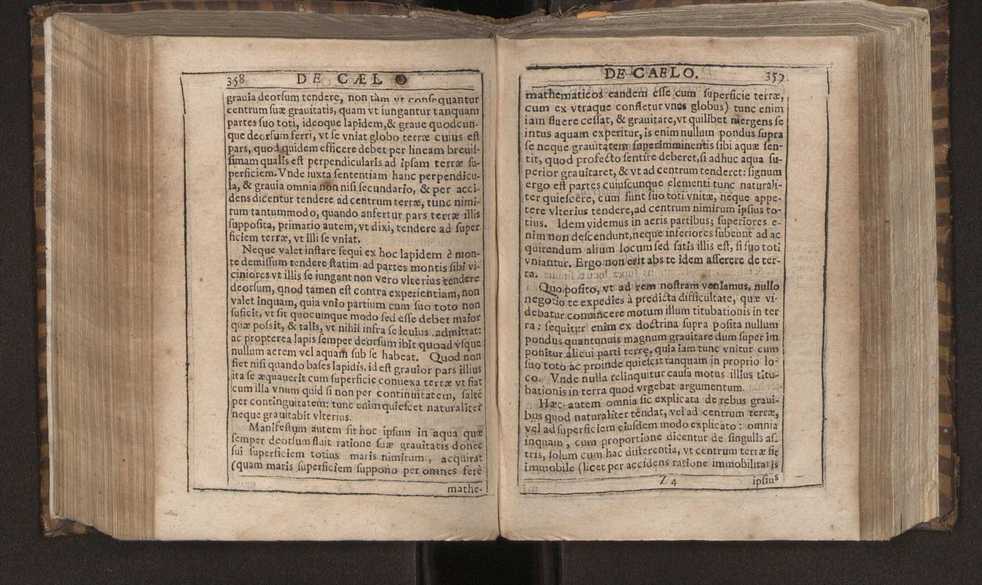 358 DE CÆLO
grauia deorsum tendere, non tàm vt consequantur
centrum suæ grauitatis, quam vt iungantur tanquam
partes suo toti, ideoque lapidem, & graue quodcun-
que deorsum ferri, vt se vniat globo terræ cuius est
pars, quod quidem efficere debet per lineam breuis-
simam qualis est perpendicularis ad ipsam terræ su-
perficiem. Vnde iuxta sententiam hanc perpendicu-
la, & grauia omnia non nisi secundario, & per acci-
dens dicentur tendere ad centrum terræ, tunc nimi-
rum tantummodo, quando anfertur pars terræ illis
supposita, primario autem, vt dixi, tendere ad super
ficiem terræ, vt illi se vniat.
Neque valet instare sequi ex hoc lapidem è mon-
te demissum tendere statim ad partes montis sibi vi-
ciniores vt illis se iungant non vero vlterius tendere
deorsum, qnod tamen est contra experientiam, non
valet inquam, quia vnio partium cum suo toto non
suficit, vt sit quocumque modo sed esse debet maior
quæ possit, & talis, vt nihil infra se leuius admittat:
ac propterea lapis semper deorsum ibit quoad vsque
nullum aerem vel aquam sub se habeat. Quod non
fiet nisi quando bases lapidis, id est grauior pars illius
ita se æquauerit cum superficie conuexa terræ vt fiat
cum illa vnum quid si non per continuitatem, saltẽ
per continguitatem: tunc enim quiescet naturaliter
neque grauitabit vlterius.
Manifestum autem fit hoc ipsum in aqua quæ
semper deorsum fluit ratione suæ grauitatis donec
sui superficiem totius maris nimirum, acquirat
(quam maris superficiem suppono per omnes ferè
mathe-
DE CAELO. 359
mathematicos eandem esse cum superficie terræ,
cum ex vtraque confletur vnus globus) tunc enim
iam fluere cessat, & grauitare, vt quilibet mergens se
intus aquam experitur, is enim nullum pondus supra
se neque grauitatem superimminentis sibi aquæ sen-
tit, quod profecto sentire deberet, si adhuc aqua su-
perior grauitaret, & vt ad centrum tenderet: signum
ergo est partes cuiuscunque elementi tunc naturali-
ter quiescere, cum sunt suo toti vnitæ, neque appe-
tere vlterius tendere, ad centrum nimirum ipsius to-
tius. Idem videmus in aeris partibus; superiores e-
nim non descendunt, neque inferiores subeunt ad ac
quirendum alium locum sed satis illis est, si suo toti
vniantur. Ergo non erit abs te idem asserere de ter-
ra.
Quo posito, vt ad rem nostram veniamus, nullo
negotio te expedies à prędicta difficultate, quæ vi-
debatur conuincere motum illum titubationis in ter
ra: sequitur enim ex doctrina supra posita nullum
pondus quantunuis magnum grauitare dum super im
ponitur alicui parti terrę, quia iam tunc vnitur cum
suo toto ac proinde quiescit tanquam in proprio lo-
co. Vnde nulla relinquitur causa motus illius titu-
bationis in terra quod vrgebat argumentum.
Hæc autem omnia sic explicata de rebus graui-
bus quod naturaliter tẽdat, vel ad centrum terræ,
vel ad superficiem eiusdem modo explicato: omnia
inquam, cum proportione dicentur de singulis as-
tris, solum cum hac differentia, vt centrum terræ sit
immobile (licet per accidens ratione immobilitatis
Z 4 ipsius